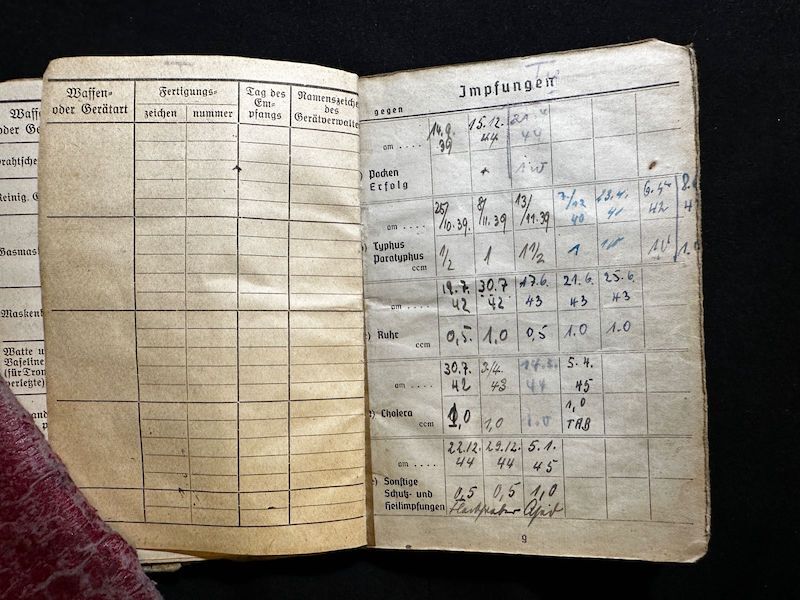 Waffen-
oder Gerätart
Fertigungs-
zeichen
nummer
Tag des
Em-
pfangs
Namenszeichen
des
Gerätverwalte
Waff
oder Ge
rahtsche
Reinig. G
Gasmas
Maskenb
Watte u
Vaseline
(für Tron
verletzte)
Impfungen
gegen
am . . . .
14.9. 39
15.12. 44
21.4 44
) Pocken
Erfolg
+
am . . . .
25/ 10.39.
8/ 11.39
13/ 11.39
7/12 40
13.4. 41
6.5. 42
8. 4
) Typhus
Paratyphus
ccm
1/2
1
1 1/2
1
1.0
am . . . .
19.7. 42
30.7 42
17.6. 43
21.6. 43
25.6. 43
) Ruhr
ccm
0,5
1,0
0,5
1.0
1.0
am . . . .
30.7. 42
3/4. 43
14.3. 44
5.4. 45
) Cholera
ccm
1,0
1,0
1.0
1,0 TAB
am . . . .
22.12. 44
29.12. 44
5.1. 45
) Sonstige
Schutz- und
Heilimpfungen
0,5
0,5
1,0
9